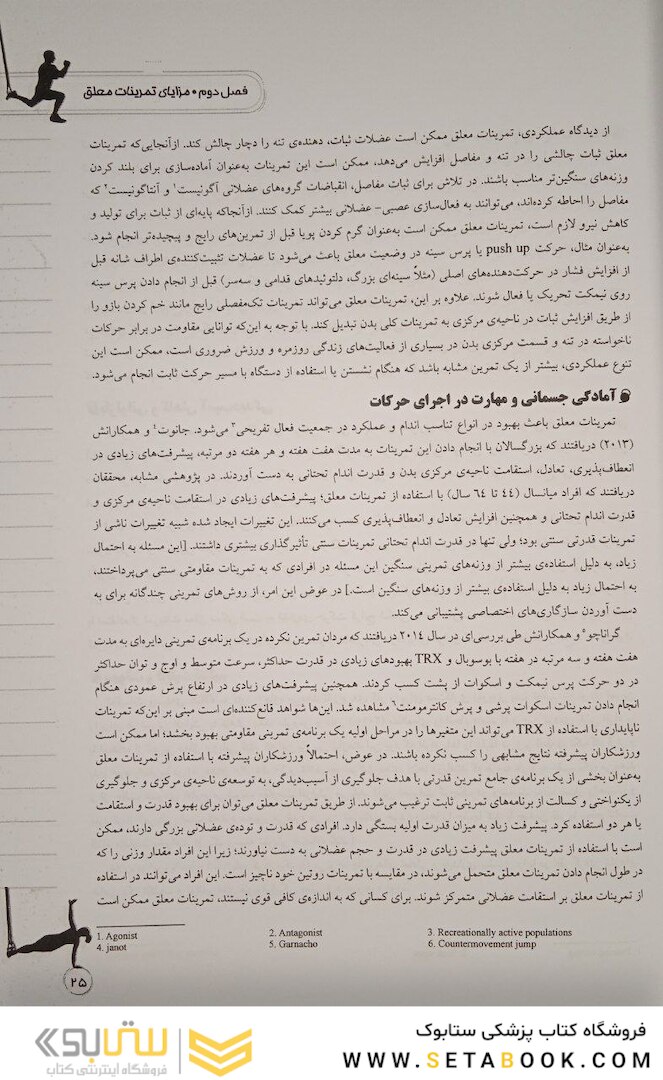 فصل دوم • مزایای تمرینات معلق
از دیدگاه عملکردی، تمرینات معلق ممکن است عضلات ثبات، دهنده‌ی تنه را دچار چالش کند. ازآنجایی‌که تمرینات
معلق ثبات چالشی را در تنه و مفاصل افزایش می‌دهد، ممکن است این تمرینات به‌عنوان آماده‌سازی برای بلند کردن
وزنه‌های سنگین‌تر مناسب باشند. در تلاش برای ثبات مفاصل، انقباضات گروه‌های عضلانی آگونیست۱ و آنتاگونیست۲ که
مفاصل را احاطه کرده‌اند، می‌توانند به فعال‌سازی عصبی- عضلانی بیشتر کمک کنند. ازآنجاکه پایه‌ای از ثبات برای تولید و
کاهش نیرو لازم است، تمرینات معلق ممکن است به‌عنوان گرم کردن پویا قبل از تمرین‌های رایج و پیچیده‌تر انجام شود.
به‌عنوان مثال، حرکت push up یا پرس سینه در وضعیت معلق باعث می‌شود تا عضلات تثبیت‌کننده‌ی اطراف شانه قبل
از افزایش فشار در حرکت‌دهنده‌های اصلی (مثلاً سینه‌ای بزرگ، دلتوئیدهای قدامی و سه‌سر) قبل از انجام دادن پرس سینه
روی نیمکت تحریک یا فعال شوند. علاوه بر این، تمرینات معلق می‌تواند تمرینات تک‌مفصلی رایج مانند خم کردن بازو را
از طریق افزایش ثبات در ناحیه‌ی مرکزی به تمرینات کلی بدن تبدیل کند. با توجه به این‌که توانایی مقاومت در برابر حرکات
ناخواسته در تنه و قسمت مرکزی بدن در بسیاری از فعالیت‌های زندگی روزمره و ورزش ضروری است، ممکن است این
تنوع عملکردی، بیشتر از یک تمرین مشابه باشد که هنگام نشستن یا استفاده از دستگاه با مسیر حرکت ثابت انجام می‌شود.
آمادگی جسمانی و مهارت در اجرای حرکات
تمرینات معلق باعث بهبود در انواع تناسب اندام و عملکرد در جمعیت فعال تفریحی۳ می‌شود. جانوت۴ و همکارانش
(۲۰۱۳) دریافتند که بزرگسالان با انجام دادن این تمرینات به مدت هفت هفته و هر هفته دو مرتبه، پیشرفت‌های زیادی در
انعطاف‌پذیری، تعادل، استقامت ناحیه‌ی مرکزی بدن و قدرت اندام تحتانی به دست آوردند. در پژوهشی مشابه، محققان
دریافتند که افراد میانسال (٤٤ تا ٦٤ سال) با استفاده از تمرینات معلق؛ پیشرفت‌های زیادی در استقامت ناحیه‌ی مرکزی و
قدرت اندام تحتانی و همچنین افزایش تعادل و انعطاف‌پذیری کسب می‌کنند. این تغییرات ایجاد شده شبیه تغییرات ناشی از
تمرینات قدرتی سنتی بود؛ ولی تنها در قدرت اندام تحتانی تمرینات سنتی تأثیرگذاری بیشتری داشتند. [این مسئله به احتمال
زیاد، به دلیل استفاده‌ی بیشتر از وزنه‌های تمرینی سنگین این مسئله در افرادی که به تمرینات مقاومتی سنتی می‌پرداختند،
به احتمال زیاد به دلیل استفاده‌ی بیشتر از وزنه‌های سنگین است.] در عوض این امر، از روش‌های تمرینی چندگانه برای به
دست آوردن سازگاری‌های اختصاصی پشتیبانی می‌کند.
گراناچو۵ و همکارانش طی بررسی‌ای در سال ۲۰۱۴ دریافتند که مردان تمرین نکرده در یک برنامه‌ی تمرینی دایره‌ای به مدت
هفت هفته و سه مرتبه در هفته با بوسوبال و TRX بهبودهای زیادی در قدرت حداکثر، سرعت متوسط و اوج و توان حداکثر
در دو حرکت پرس نیمکت و اسکوات از پشت کسب کردند. همچنین پیشرفت‌های زیادی در ارتفاع پرش عمودی هنگام
انجام دادن تمرینات اسکوات پرشی و پرش کانترمومنت۶ مشاهده شد. این‌ها شواهد قانع‌کننده‌ای است مبنی بر این‌که تمرینات
ناپایداری با استفاده از TRX می‌تواند این متغیرها را در مراحل اولیه یک برنامه‌ی تمرینی مقاومتی بهبود بخشد؛ اما ممکن است
ورزشکاران پیشرفته نتایج مشابهی را کسب نکرده باشند. در عوض، احتمالاً ورزشکاران پیشرفته با استفاده از تمرینات معلق
به‌عنوان بخشی از یک برنامه‌ی جامع تمرین قدرتی با هدف جلوگیری از آسیب‌دیدگی، به توسعه‌ی ناحیه‌ی مرکزی و جلوگیری
از یکنواختی و کسالت از برنامه‌های تمرینی ثابت ترغیب می‌شوند. از طریق تمرینات معلق می‌توان برای بهبود قدرت و استقامت
یا هر دو استفاده کرد. پیشرفت زیاد به میزان قدرت اولیه بستگی دارد. افرادی که قدرت و توده‌ی عضلانی بزرگی دارند، ممکن
است با استفاده از تمرینات معلق پیشرفت زیادی در قدرت و حجم عضلانی به دست نیاورند؛ زیرا این افراد مقدار وزنی را که
در طول انجام دادن تمرینات معلق متحمل می‌شوند، در مقایسه با تمرینات روتین خود ناچیز است. این افراد می‌توانند در استفاده
از تمرینات معلق بر استقامت عضلانی متمرکز شوند. برای کسانی که به اندازه‌ی کافی قوی نیستند، تمرینات معلق ممکن است
1. Agonist 2. Antagonist 3. Recreationally active populations
4. janot 5. Garnacho 6. Countermovement jump
۲۵
فروشگاه کتاب پزشکی ستابوک
WWW.SETABOOK.COM
ستابوک
فروشگاه اینترنتی کتاب